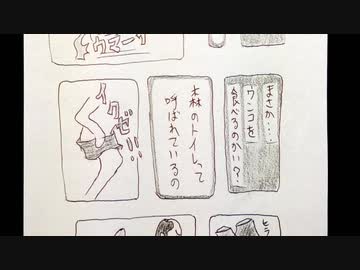 まさか・・・
ウンコを
食べるのかい？
森のトイレって
呼ばれているの
イクゼ!!